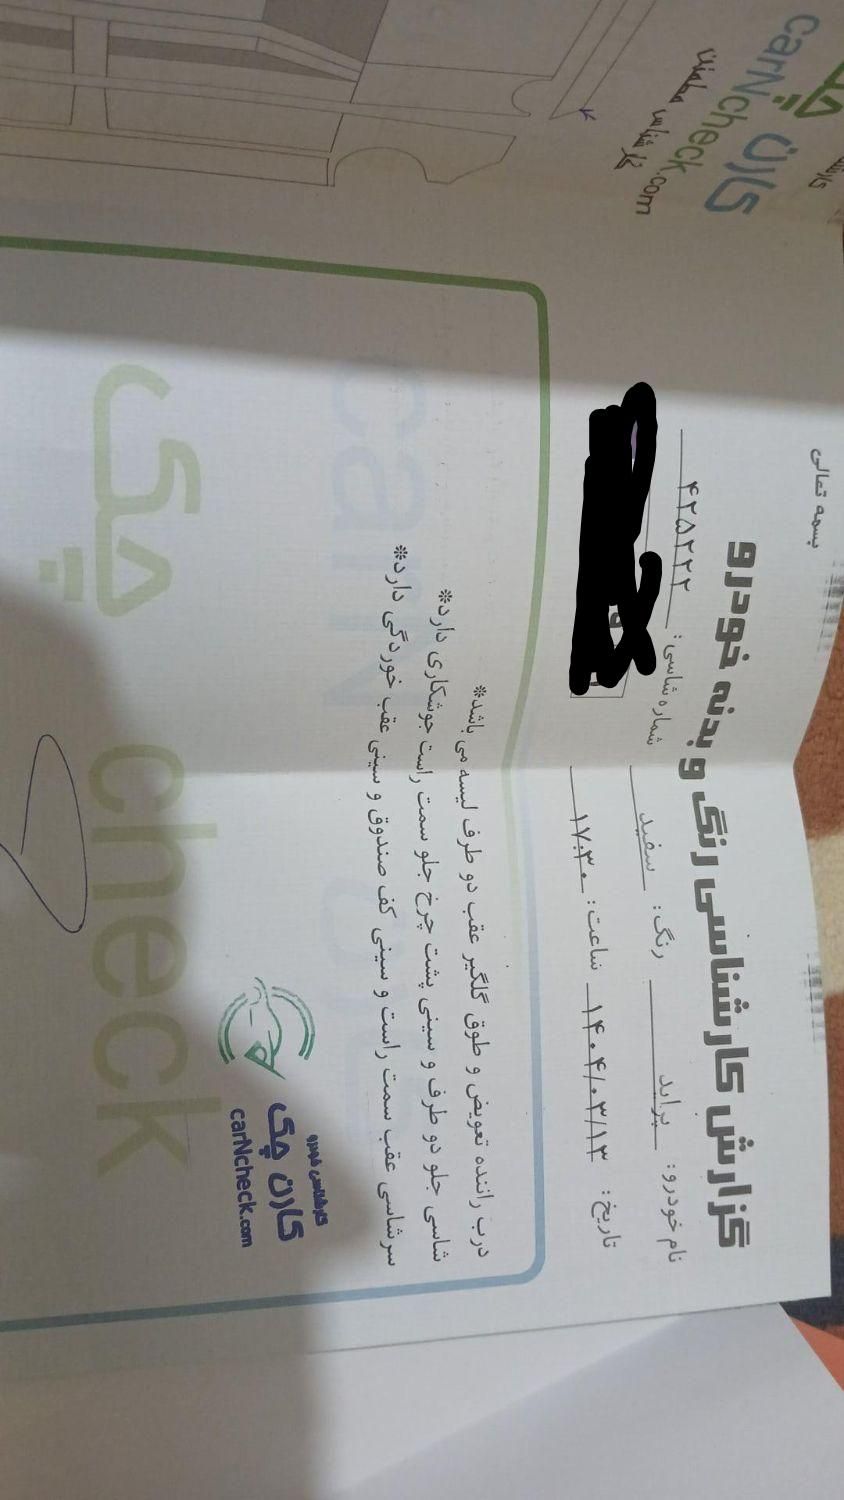 بسمه تعالی
گزارش کارشناسی رنگ و بدنه خودرو
نام خودرو: پراید رنگ: سفید شماره شاسی: ۴۲۵۲۲۲
تاریخ: ۱۴۰۴/۰۳/۱۳ ساعت: ۱۷:۳۰
درب راننده تعویض و طوق گلگیر عقب دو طرف لیسه می باشد*
شاسی جلو دو طرف و سینی پشت چرخ جلو سمت راست جوشکاری دارد*
سرشاسی عقب سمت راست و سینی کف صندوق و سینی عقب خوردگی دارد*
کارشناسی خودرو
کارن چک
carNcheck.com
carN
چک check
کارن
carNcheck.com
کارشناس